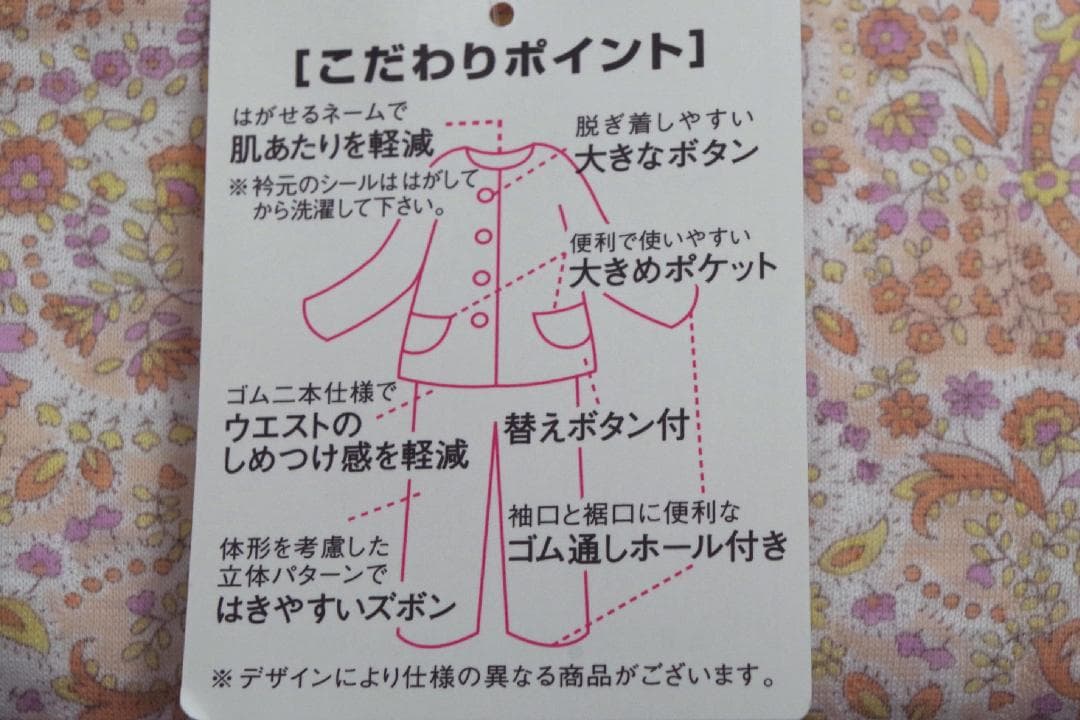 [こだわりポイント]
はがせるネームで
肌あたりを軽減
※衿元のシールは はがして
から洗濯して下さい。
脱ぎ着しやすい
大きなボタン
便利で使いやすい
大きめポケット
ゴム二本仕様で
ウエストの
しめつけ感を軽減
替えボタン付
袖口と裾口に便利な
ゴム通しホール付き
体形を考慮した
立体パターンで
はきやすいズボン
※デザインにより仕様の異なる商品がございます。